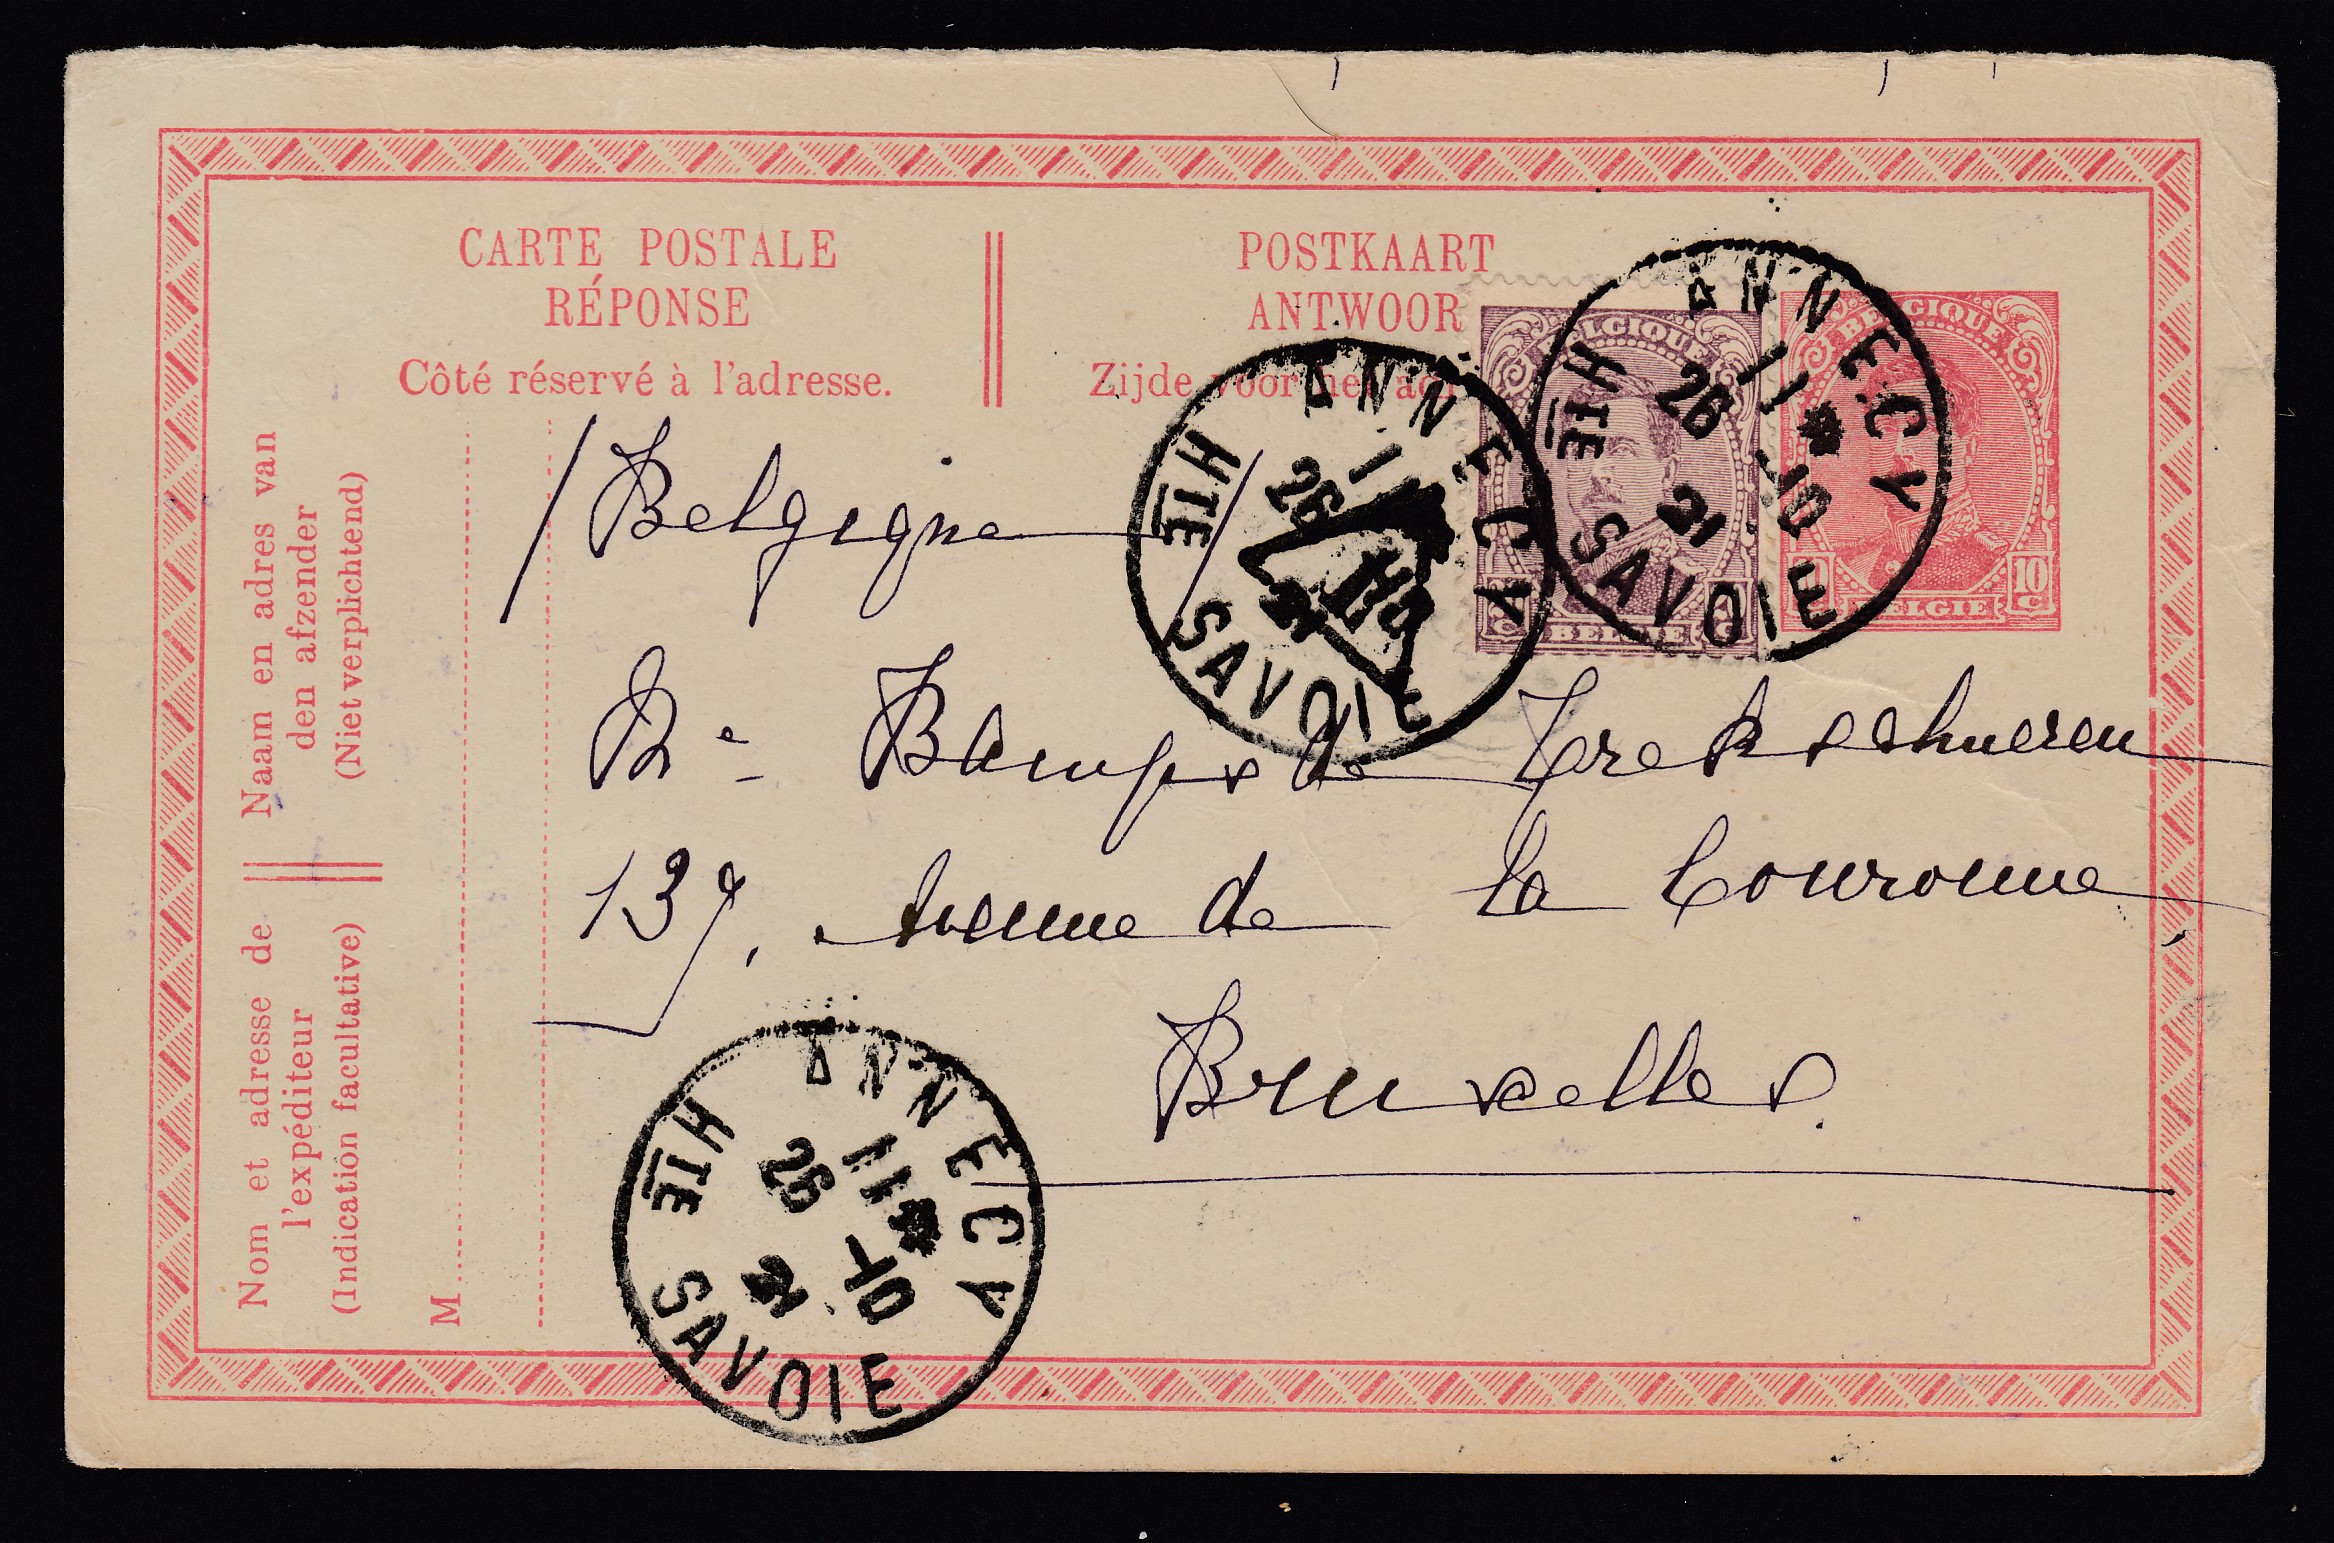 CARTE POSTALE
RÉPONSE
Côté réservé à l'adresse.
POSTKAART
ANTWOOR
Zijde voor het adr
BELGIQUE
BELGIE
BELGIQUE
10 C
BELGIE
ANNECY
11 * 26 -10 21
HTE SAVOIE
ANNECY
11 26 21
HTE SAVOIE
/ Belgique /
Bamps de
139, Avenue de la Couronne
Bruxelles.
ANNECY
11 * 26 -10 21
HTE SAVOIE
Naam en adres van
den afzender
(Niet verplichtend)
Nom et adresse de
l'expéditeur
(Indication facultative)
M